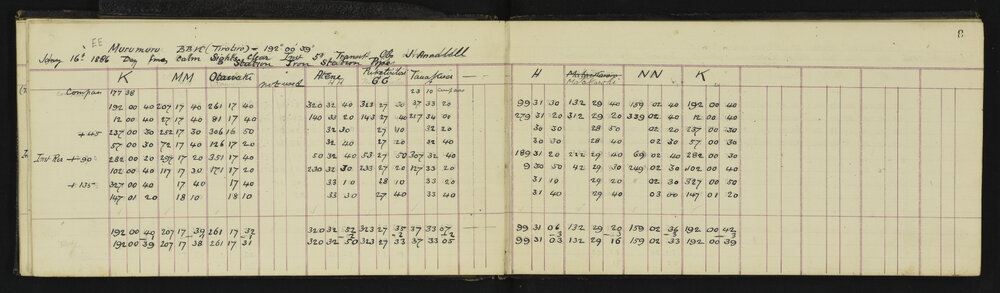 8
EE
Murumuru BBK (Tirotiro) - 192° 00' 39"
Jany 16th 1886 Day fine, calm Sights clear Inst 5" Transit, Obs
Station Iron Station Pipe
K MM Otawaka not used Atene GG Tauakura H NN K
Compan 177 38 23 10 Compass
192 00 40 207 17 40 261 17 40 320 32 40 323 27 30 37 33 20 99 31 30 132 29 40 159 02 40 192 00 40
12 00 40 27 17 40 81 17 40 140 33 20 143 27 40 217 34 00 279 31 20 312 29 20 339 02 40 12 00 40
+45 237 00 30 252 17 30 306 16 50 32 30 27 10 32 20 30 30 28 50 02 20 237 00 30
57 00 30 72 17 40 126 17 20 32 40 27 20 32 40 30 30 28 40 02 30 57 00 30
Inst Rev + 90 282 00 20 297 17 20 351 17 40 50 32 40 53 27 50 307 32 40 189 31 20 222 29 40 69 02 40 282 00 30
102 00 40 117 17 30 171 17 20 230 32 30 233 27 20 127 33 20 9 30 50 42 29 30 249 02 30 102 00 40
+135 327 00 40 17 40 17 40 33 10 28 10 33 20 31 10 29 20 02 30 327 00 50
147 01 20 18 10 18 10 33 30 27 40 33 40 31 40 29 40 03 00 147 01 20
192 00 40 207 17 39 261 17 32 320 32 52 323 27 35 37 33 07 99 31 06 132 29 20 159 02 36 192 00 42
-2 -2 -2 -3 -3 -3 -3
192 00 39 207 17 38 261 17 31 320 32 50 323 27 33 37 33 05 99 31 03 132 29 16 159 02 33 192 00 39